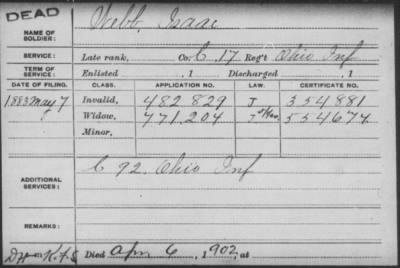 DEAD
NAME OF SOLDIER: Webb, Isaac
SERVICE: Late rank, Co. C, 17 Reg't Ohio Inf
TERM OF SERVICE: Enlisted , 1 Discharged , 1
DATE OF FILING. CLASS. APPLICATION NO. LAW. CERTIFICATE NO.
1883 May 7 Invalid, 482.829 J 354.881
Widow, 771.204 554674.
Minor,
ADDITIONAL SERVICES: C 92. Ohio Inf
REMARKS:
Died Apr 6, 1902, at